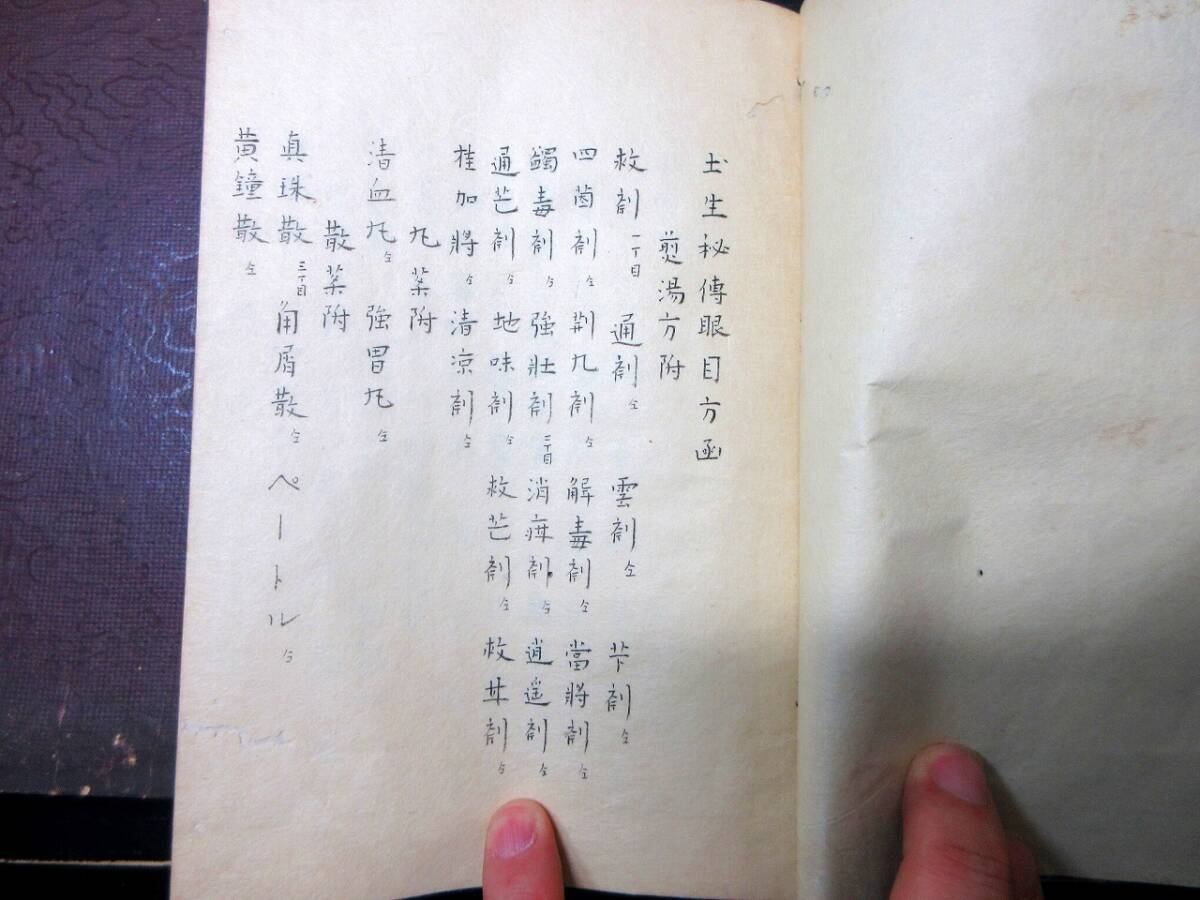 土生秘傳眼目方函
煎湯方附
救剤 一丁目 通剤 仝 雲剤 仝 芐剤 仝
四茵剤 仝 荆九剤 仝 解毒剤 仝 當將剤 仝
蠲毒剤 仝 強壮剤 二丁目 消痳剤 仝 逍遥剤 仝
通芒剤 仝 地味剤 仝 救芒剤 仝 救剤 仝
桂加將 仝 清凉剤 仝
九薬附
清血圥 仝 強胃圥 仝
散薬附
真珠散 三丁目 角屑散 仝 ペートル 仝
黄鐘散 仝